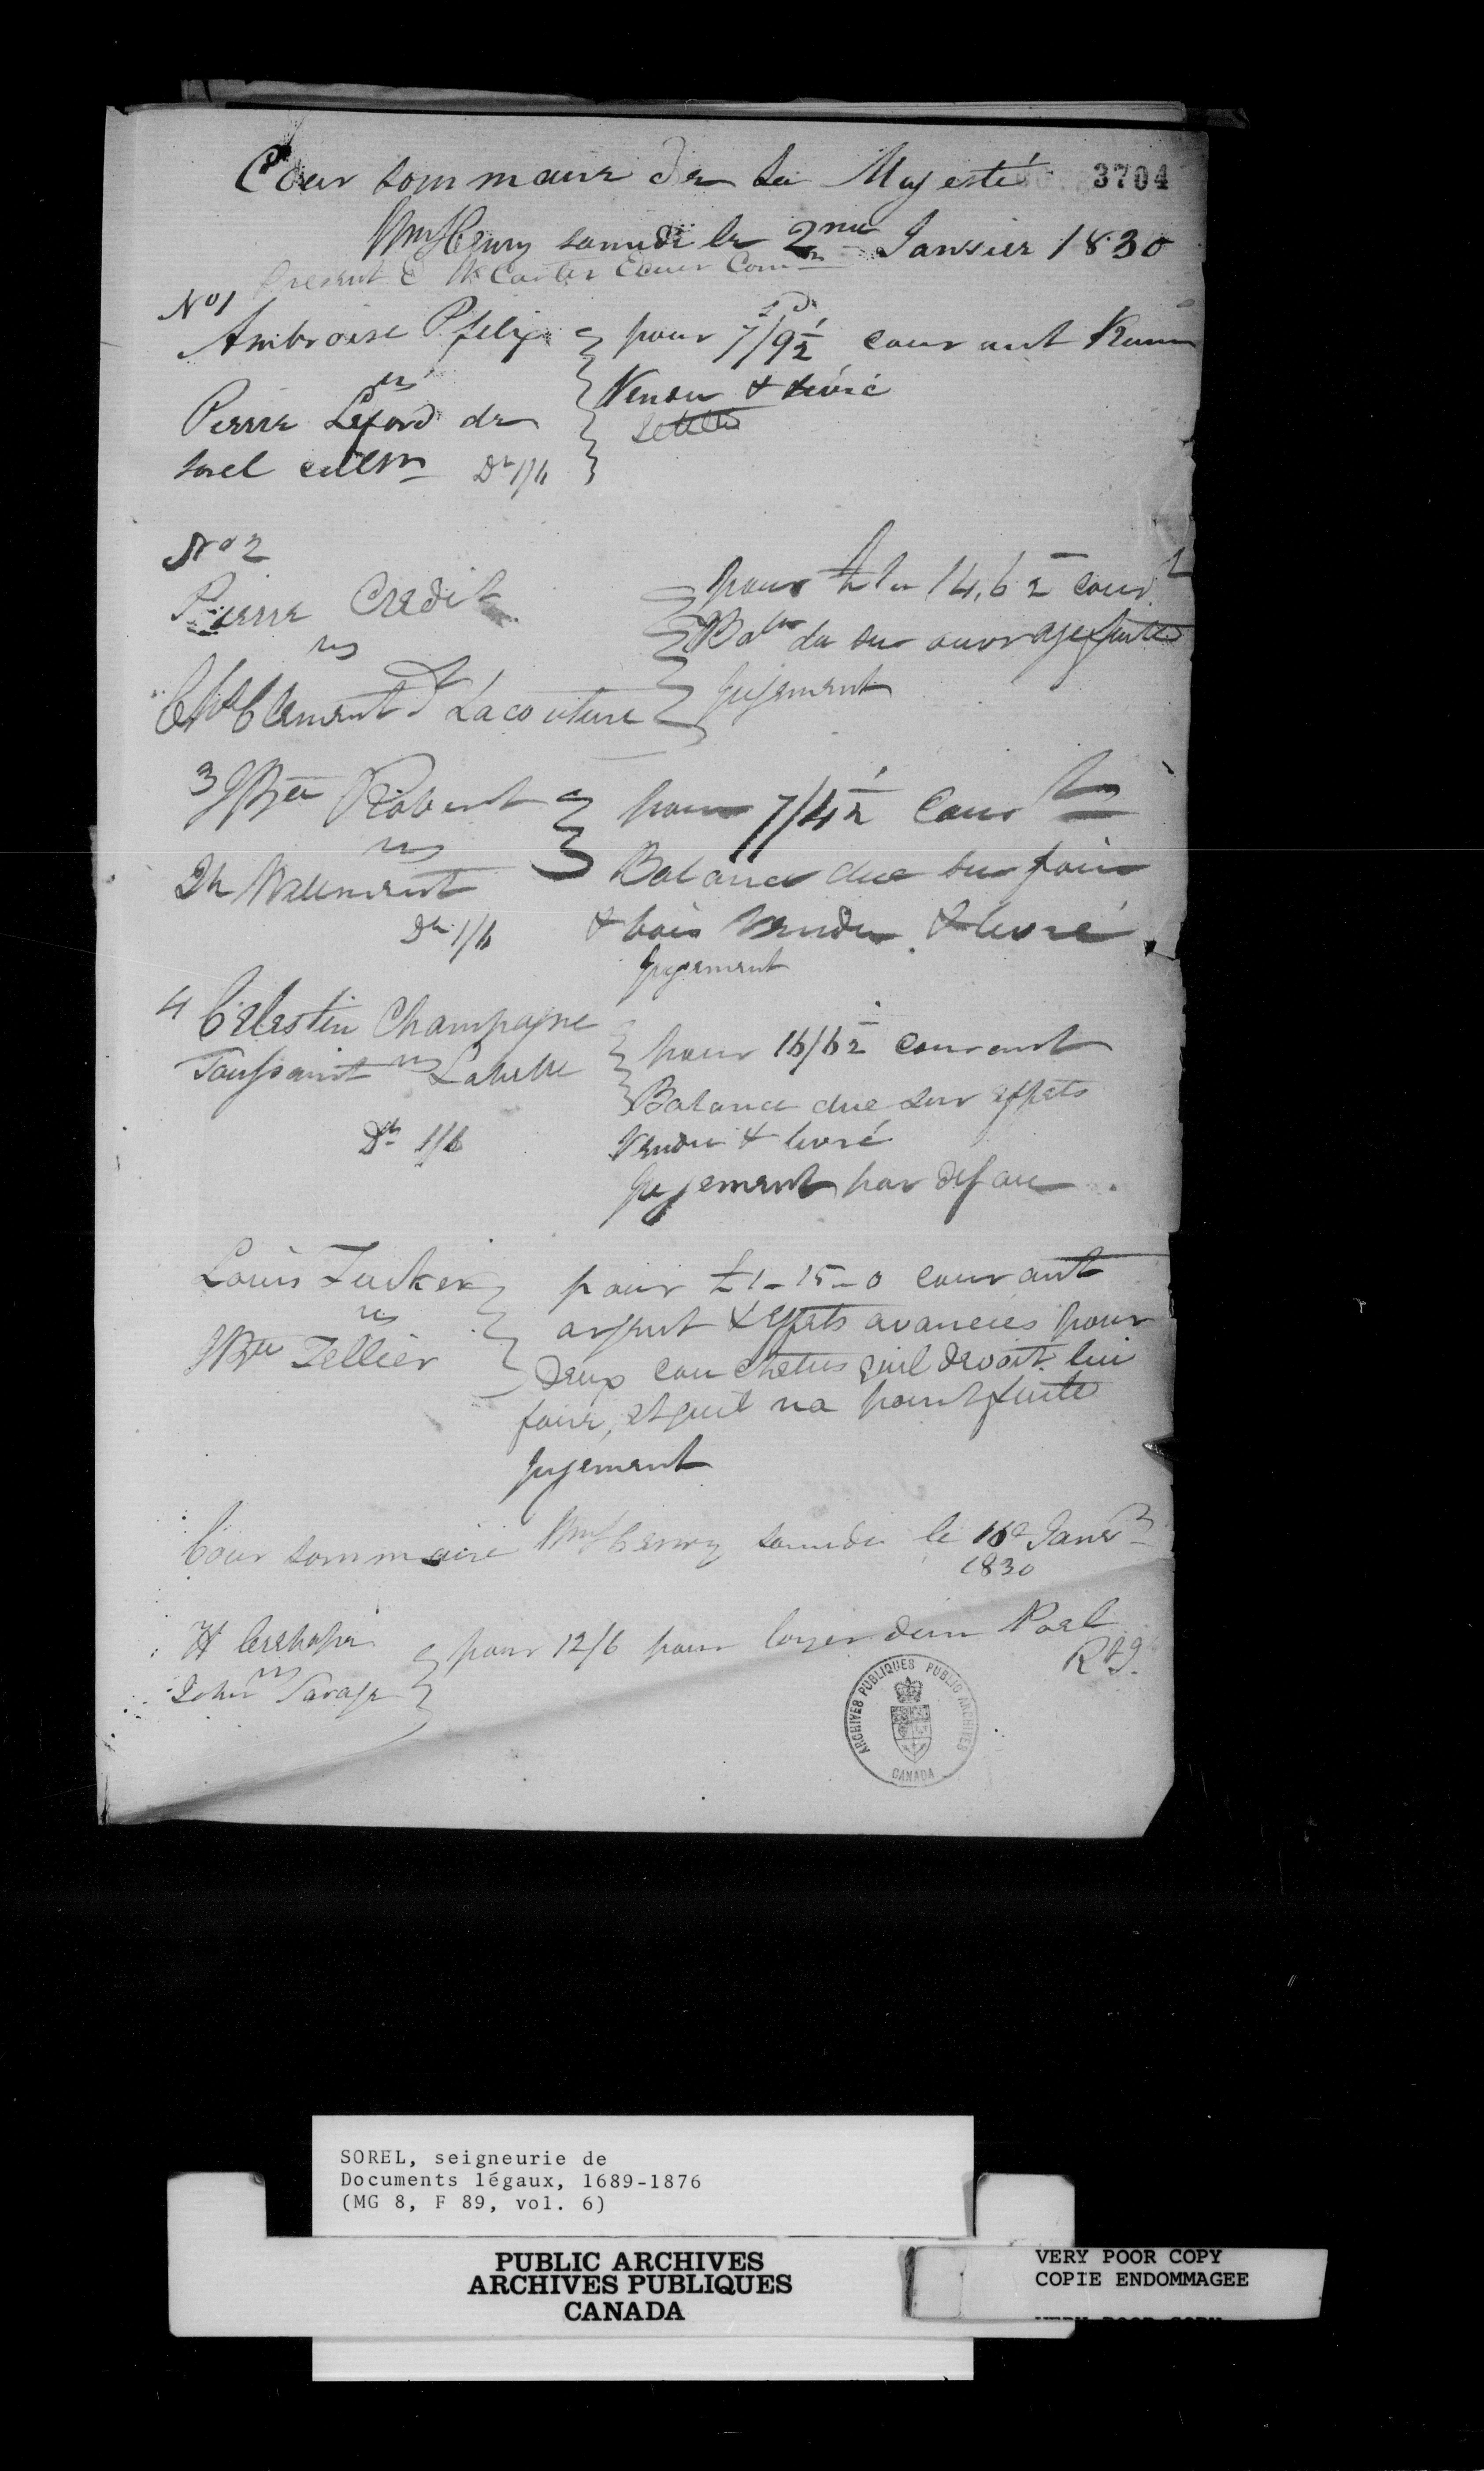 Cour sommaire de Sa Majesté 3704
Wm Henry samedi le 2me Janvier 1830
Present E Carter Ecuier Com
No 1
Ambroise P. felix } pour 7/9½ courant Rum
vs Vendu & livré
Pierre Leford de Settled
Sorel Dr 1/6
No 2
Pierre Credit } pour 14,6½ cour t
vs Bal du sur ouvrage faite
Clement Lacouture jujement
3 JBte Robert } pour 7/4½ Cour
vs Balance due sur foin
& bois Vendu & livré
Dr 1/6
jujement
4 Celestin Champagne } pour 16/6½ courant
Toussaint vs Labelle Balance due sur effets
Dr 1/6 Vendu & livré
jujement par defau
Louis Tucker } pour £1-15-0 courant
vs arjent & effets avancées pour
JBte Tellier deux couchettes quil devoit lui
faire, et quil na point faite
jujement
Cour sommaire Wm Henry samedi le 16e Janvr
1830
H } pour 12/6 pour loyer dun Poel
John vs Savage
ARCHIVES PUBLIQUES PUBLIC ARCHIVES
CANADA
SOREL, seigneurie de
Documents légaux, 1689-1876
(MG 8, F 89, vol. 6)
PUBLIC ARCHIVES
ARCHIVES PUBLIQUES
CANADA
VERY POOR COPY
COPIE ENDOMMAGEE
VERY POOR COPY